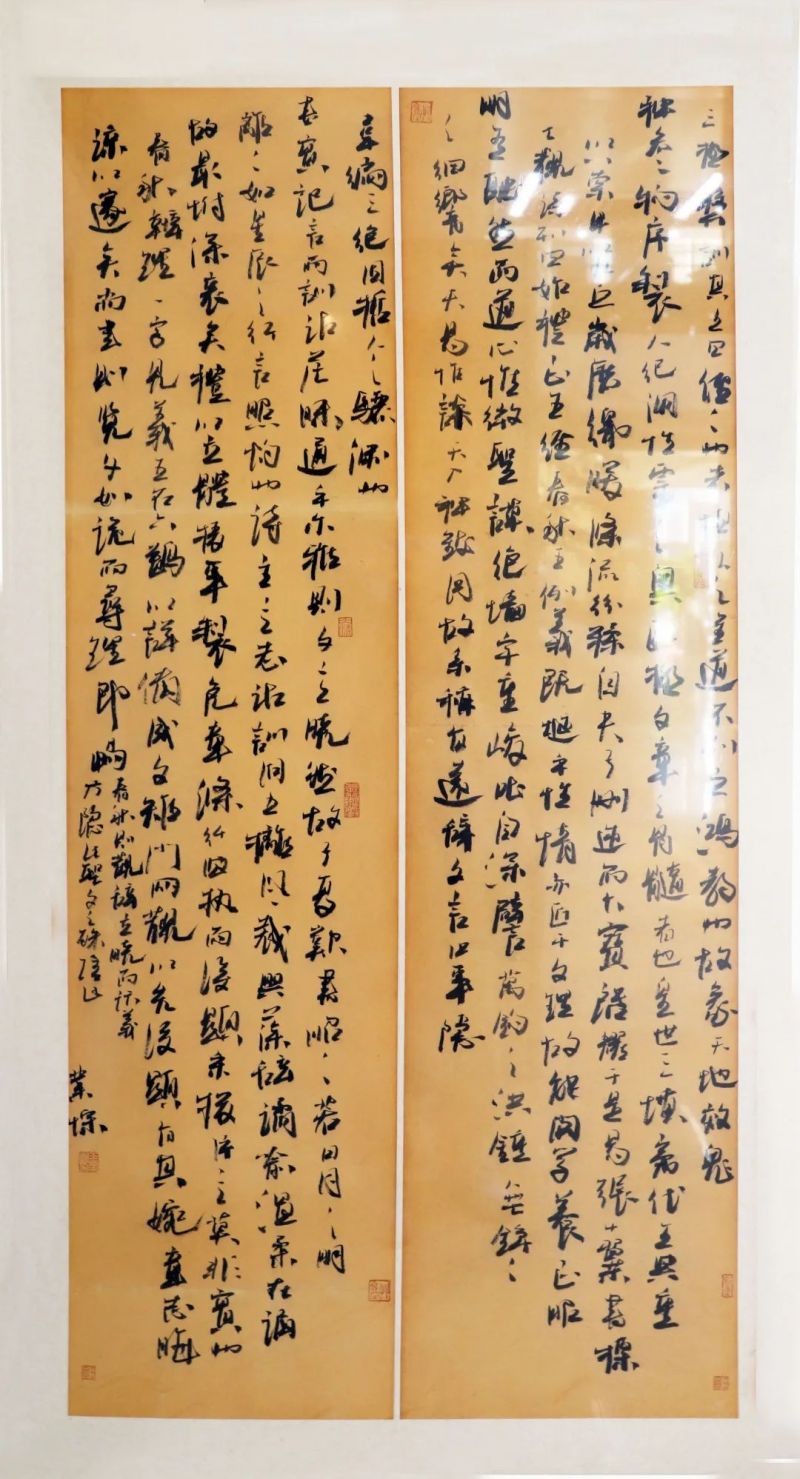 三極彝訓其書曰經々也者恒久之至道不刊之鴻教也故象天地效鬼
神參物序製人紀洞性靈之奧區極文章之骨髓者也皇世三墳帝代五典重
以索申以九丘歲歷綿曖條流紛糅自夫子刪述而大寶啓耀于是易張十翼書標
七觀詩列四始禮正五經春秋五例義既極乎性情亦匠于文理故能開學養正昭
明有融然而道心惟微聖謨絕墻宇重峻吐自深譬萬鈞之洪鍾無錚々
之細響矣夫易惟談天入神致用故系稱旨遠辭文言中事隱
韋編三絕固哲人之驪淵也
書實記言而訓詁茫昧通乎尓雅則文意曉然故子夏歎書昭々若日月之明
離々如星辰之行言照灼也詩主言志詁訓同書摛風裁興藻辭譎喻溫柔在誦
故最附深衷矣禮以立體據事製範章條纖曲執而後顯采掇片言莫非寶也
春秋辨理一字見義五石六鷁以詳備成文雉門兩觀以先後顯旨其婉章志晦
諒以邃矣尚書則覽文如詭而尋理即暢
春秋則觀辭立曉而訪義
方隱此聖文之殊